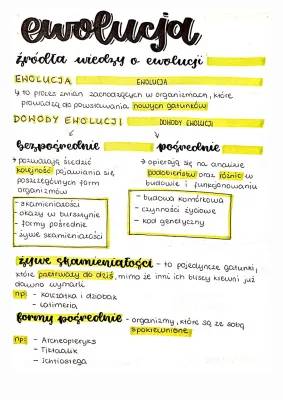 ewolucja
źródła wiedzy o ewolucji
EWOLUCJA EWOLUCJA
↳ to proces zmian zachodzących w organizmach, które
prowadzą do powstawania nowych gatunków
DOWODY EWOLUCJI DOWODY EWOLUCJI
bezpośrednie
→ pozwalają śledzić
kolejność pojawiania się
poszczególnych form
organizmów
- skamieniałości
- okazy w bursztynie
- formy pośrednie
- żywe skamieniałości
pośrednie
→ opierają się na analizie
podobieństw oraz różnic w
budowie i funkcjonowaniu
- budowa komórkowa
- czynności życiowe
- kod genetyczny
żywe skamieniałości - to pojedyncze gatunki,
które przetrwały do dziś, mimo że inni ich bliscy krewni już
dawno wymarli
np: - kolczatka i dziobak
- latimeria
formy pośrednie - organizmy, które są ze sobą
spokrewnione
np: - Archeopteryks
- Tiktaalik
- Ichtiostega